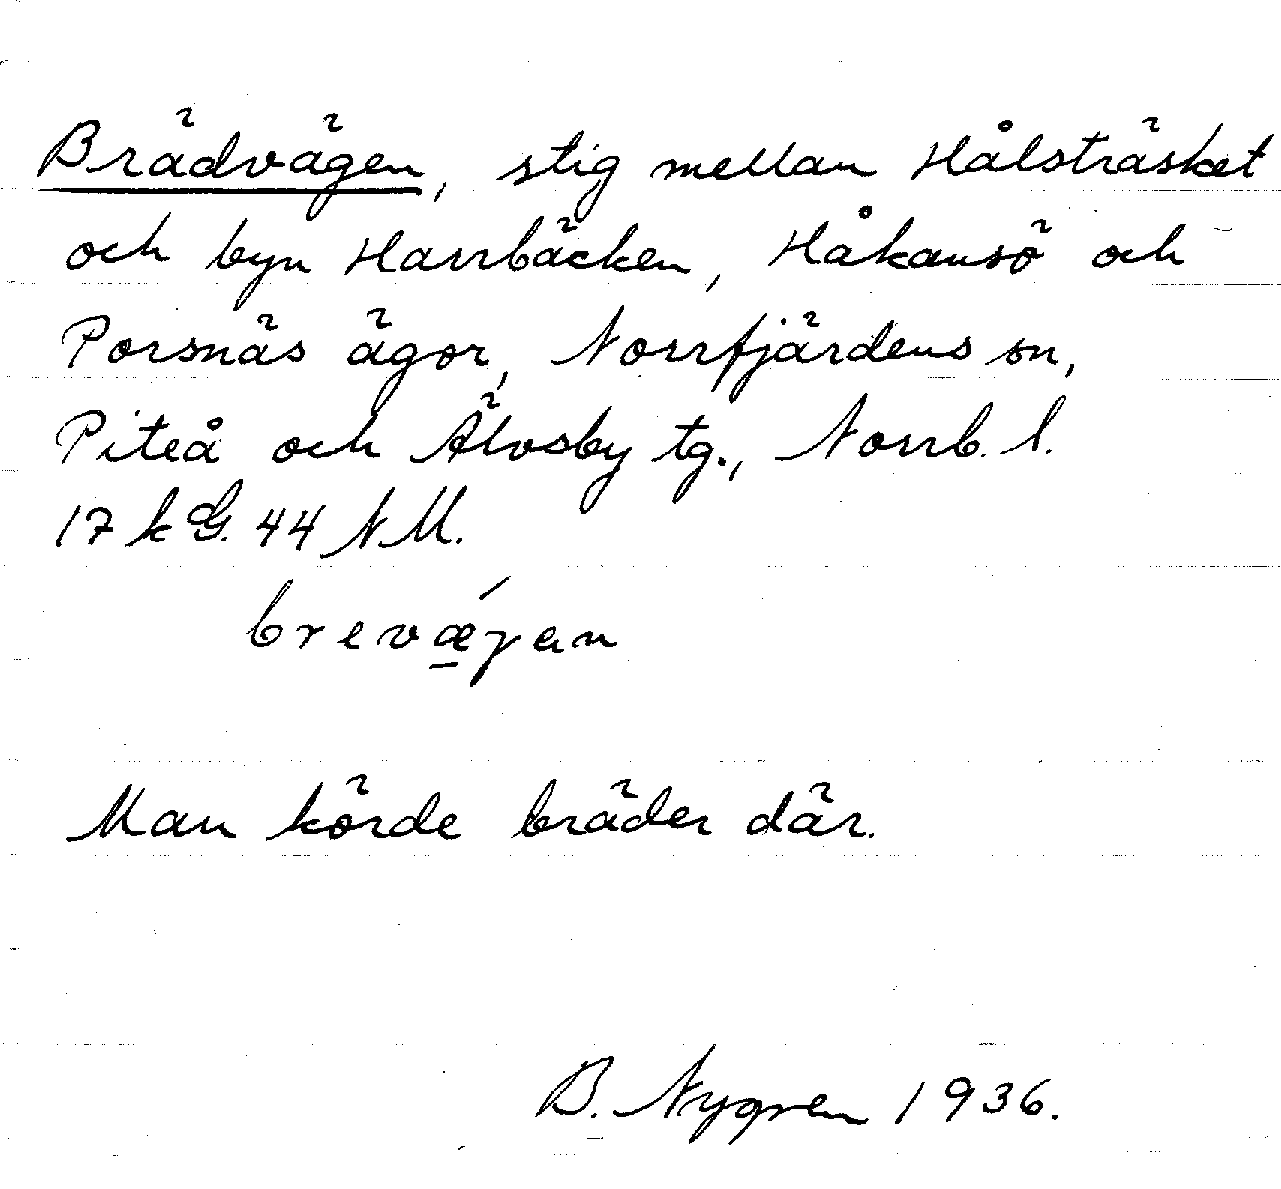 Brädvägen, stig mellan Hålsträsket
och byn Harrbäcken, Håkansö och
Porsnäs ägor, Norrfjärdens sn,
Piteå och Älvsby tg., Norrb. l.
17 k G. 44 N M.
brevǽ̱gan
Man körde bräder där.
B. Nygren 1936.